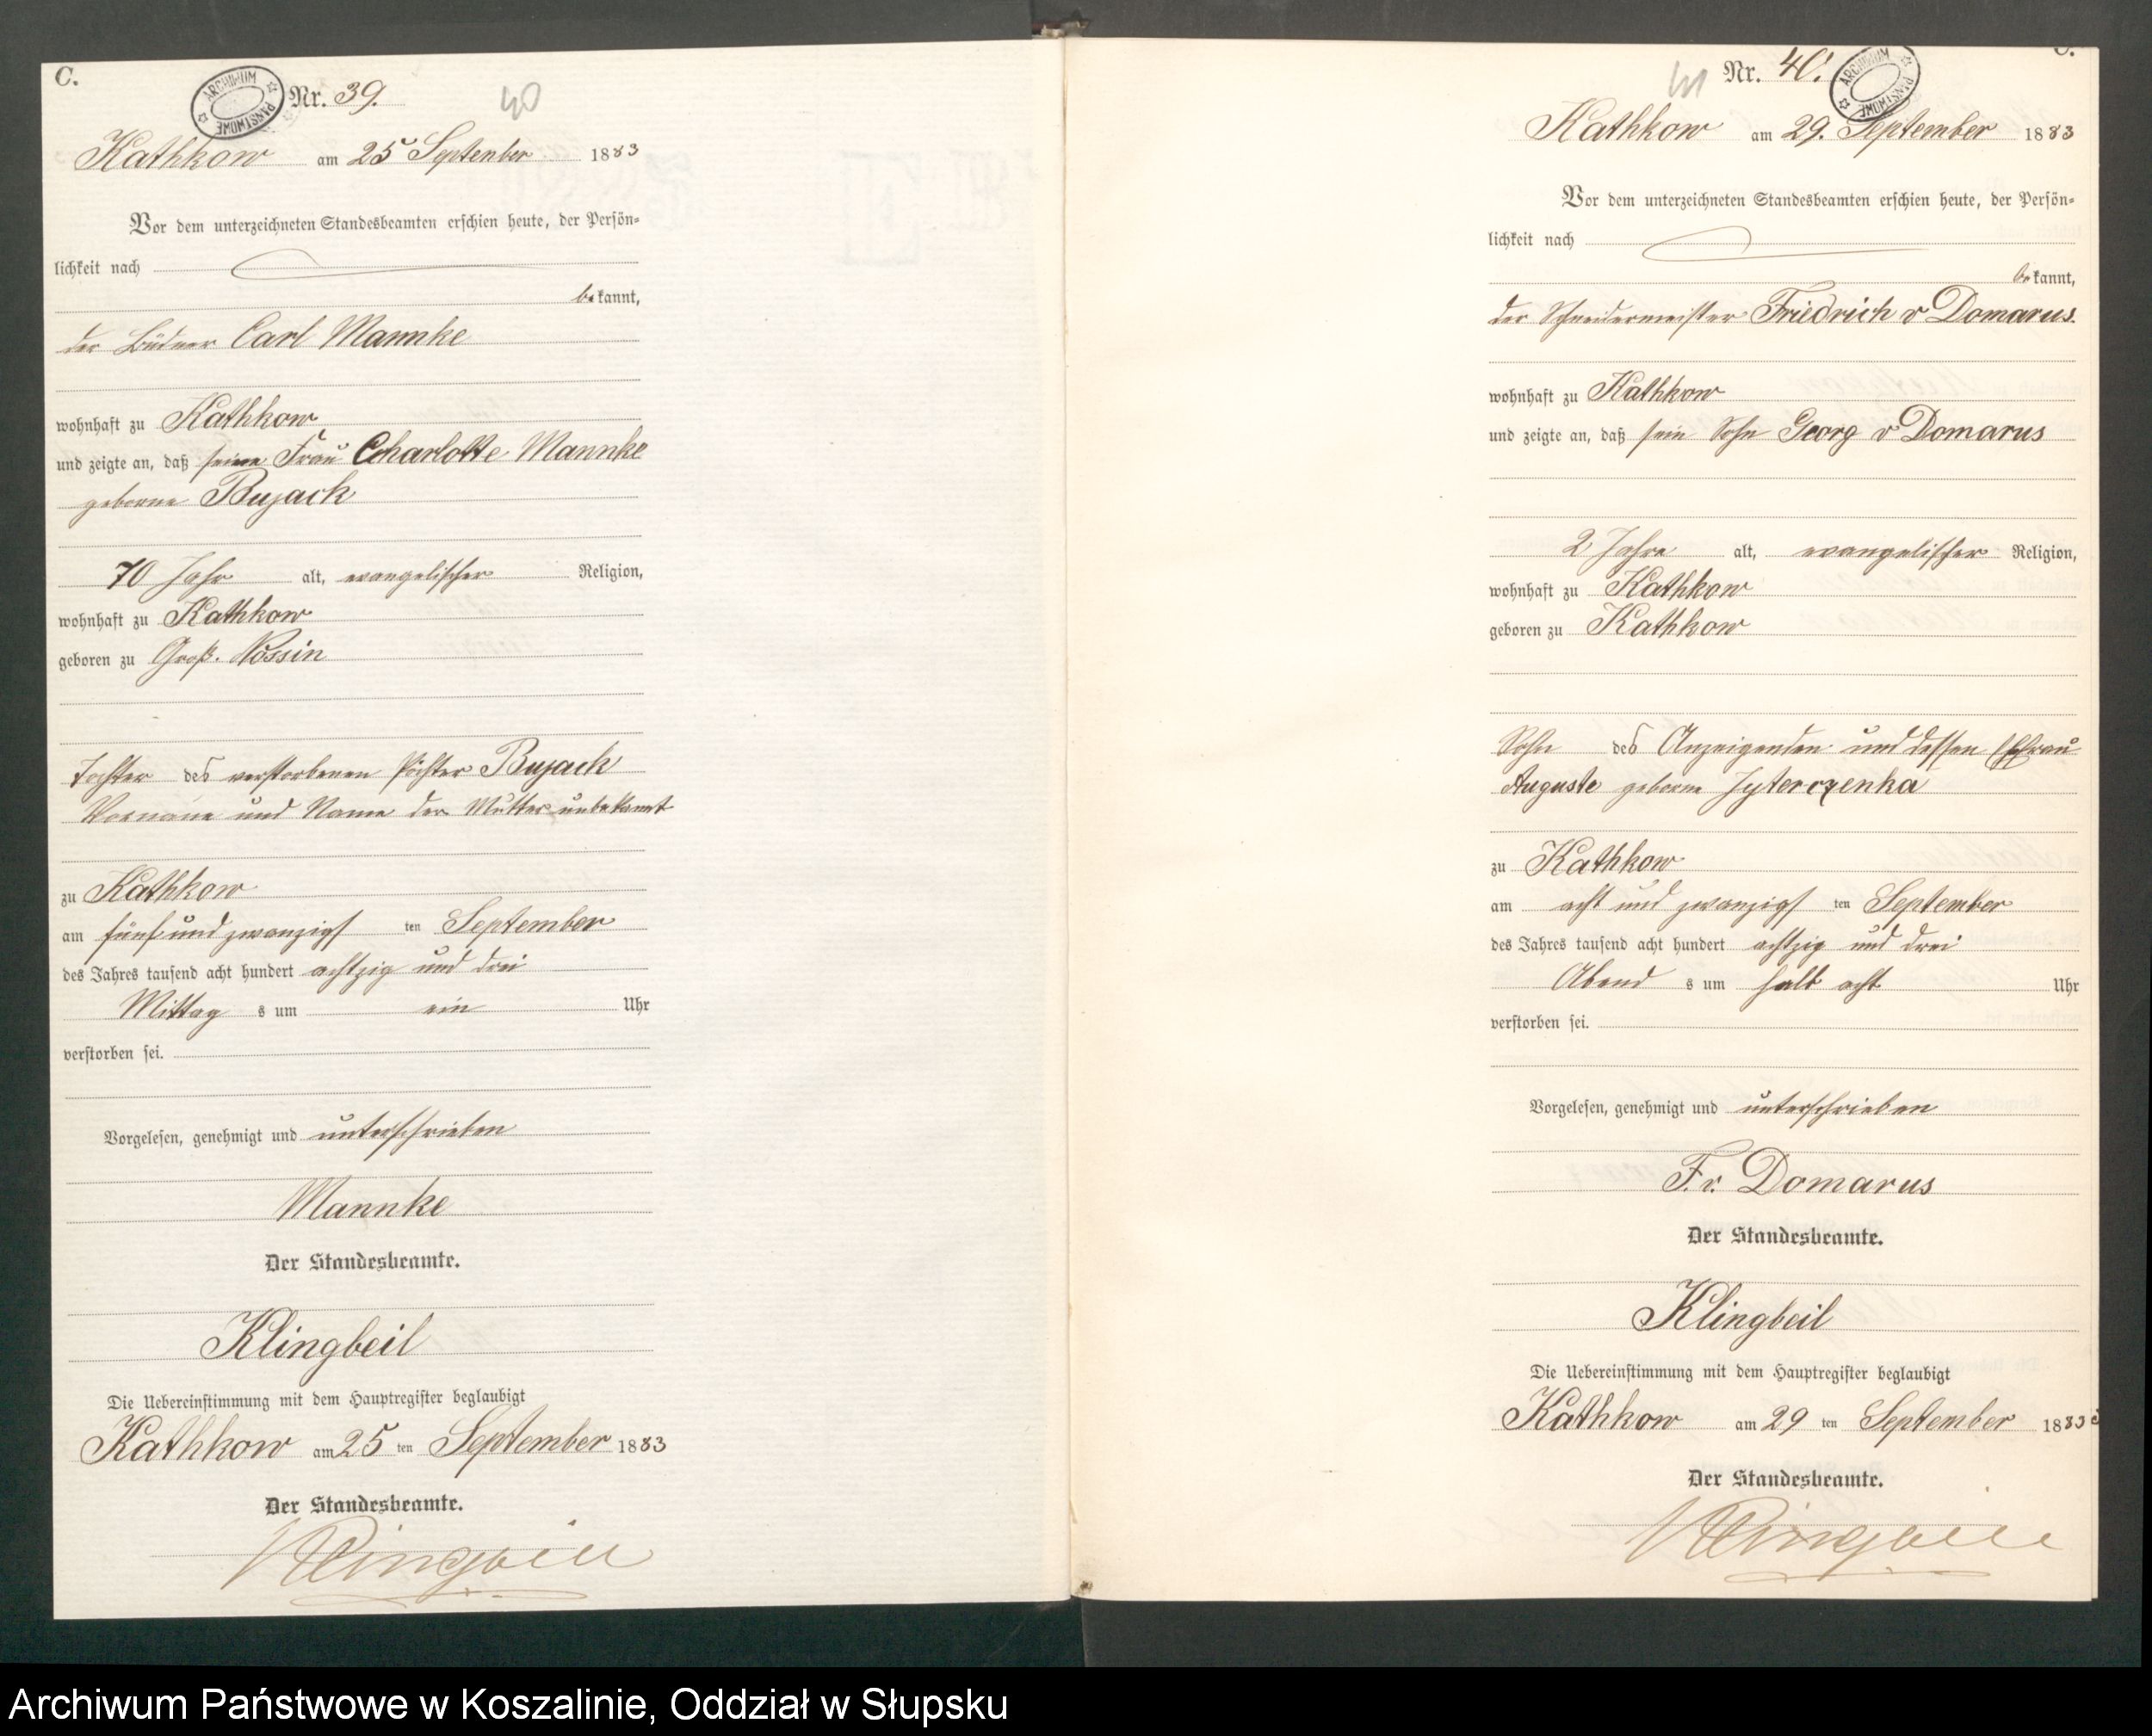 C.
ARCHIWUM PAŃSTWOWE
Nr. 39.
40
Kathkow am 25 September 1883
Vor dem unterzeichneten Standesbeamten erschien heute, der Persön-
lichkeit nach
bekannt,
der Büdner Carl Mannke
wohnhaft zu Kathkow
und zeigte an, daß seine Frau Charlotte Mannke
geborne Bujack
70 Jahr alt, evangelischer Religion,
wohnhaft zu Kathkow
geboren zu Groß. Nossin
Tochter des verstorbenen Pächter Bujack
Vorname und Name der Mutter unbekannt
zu Kathkow
am fünf und zwanzigs ten September
des Jahres tausend acht hundert achtzig und drei
Mittag s um ein Uhr
verstorben sei.
Vorgelesen, genehmigt und unterschrieben
Mannke
Der Standesbeamte.
Klingbeil
Die Uebereinstimmung mit dem Hauptregister beglaubigt
Kathkow am 25 ten September 1883
Der Standesbeamte.
Klingbeil
C.
41
Nr. 40.
ARCHIWUM PAŃSTWOWE
Kathkow am 29. September 1883
Vor dem unterzeichneten Standesbeamten erschien heute, der Persön-
lichkeit nach
bekannt,
der Schneidermeister Friedrich v Domarus.
wohnhaft zu Kathkow
und zeigte an, daß sein Sohn Georg v Domarus
2 Jahre alt, evangelischer Religion,
wohnhaft zu Kathkow
geboren zu Kathkow
Sohn des Anzeigenden und dessen Ehfrau
Auguste geborne Jyterczenka
zu Kathkow
am acht und zwanzigs ten September
des Jahres tausend acht hundert achtzig und drei
Abend s um halb acht Uhr
verstorben sei.
Vorgelesen, genehmigt und unterschrieben
F. v. Domarus
Der Standesbeamte.
Klingbeil
Die Uebereinstimmung mit dem Hauptregister beglaubigt
Kathkow am 29 ten September 1883
Der Standesbeamte.
Klingbeil
Archiwum Państwowe w Koszalinie, Oddział w Słupsku